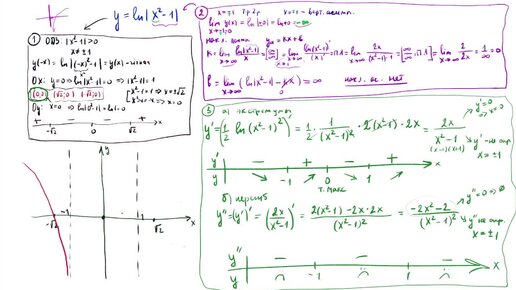 y = ln|x²-1|
① ОВЗ: |x²-1|>0
x≠±1
y(-x) = ln|(-x)²-1| = y(x) - чётная
Ox: y=0 ⇒ ln|x²-1|=0 ⇒ |x²-1|=1
(0;0) (√2;0) (-√2;0)
x²-1=1 ⇒ x=±√2
x²-1=-1 ⇒ x=0
Oy: x=0 ⇒ ln|0²-1|=ln1=0
+ - - +
-√2 0 √2 x
y
-√2 -1 1 √2 x
② x=-1 x=1 - верт. асимпт.
lim y(x) = ln|±0| = ln+0 = -∞
x→±1±0
накл. асимп. yₐ = kx+b
k = lim ln|x²-1|/x = [∞/∞] = lim (ln|x²-1|)'/x' = П.Л = lim 2x/(x²-1)·1 = [∞/∞ П.Л] = lim 2/2x = 1/∞ = 0
b = lim (ln|x²-1| - kx) = ∞ накл. ас. нет
③ а) экстремумы
y' = (1/2 ln(x²-1)²)' = 1/2 · 1/(x²-1)² · 2(x²-1)·2x = 2x/(x²-1)
(x-1)(x+1)
y'=0 ⇒ x=0
y' - не опр.
x=±1
y' - + - +
y -1 0 1 x
т. макс
б) перегиб
y'' = (y')' = (2x/(x²-1))' = 2(x²-1)-2x·2x/(x²-1)² = -2x²-2/(x²-1)²
y''=0 ⇒ ∅
y'' не опр.
x=±1
y'' - - -
y -1 1 x